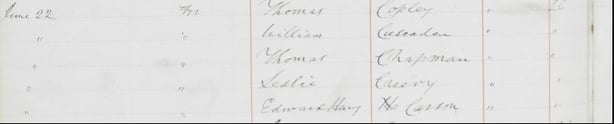 June 22 Thomas Copley "
" " William Cuscaden " "
" " Thomas Chapman " "
" " Leslie " "
" " Edward H. Carson " "